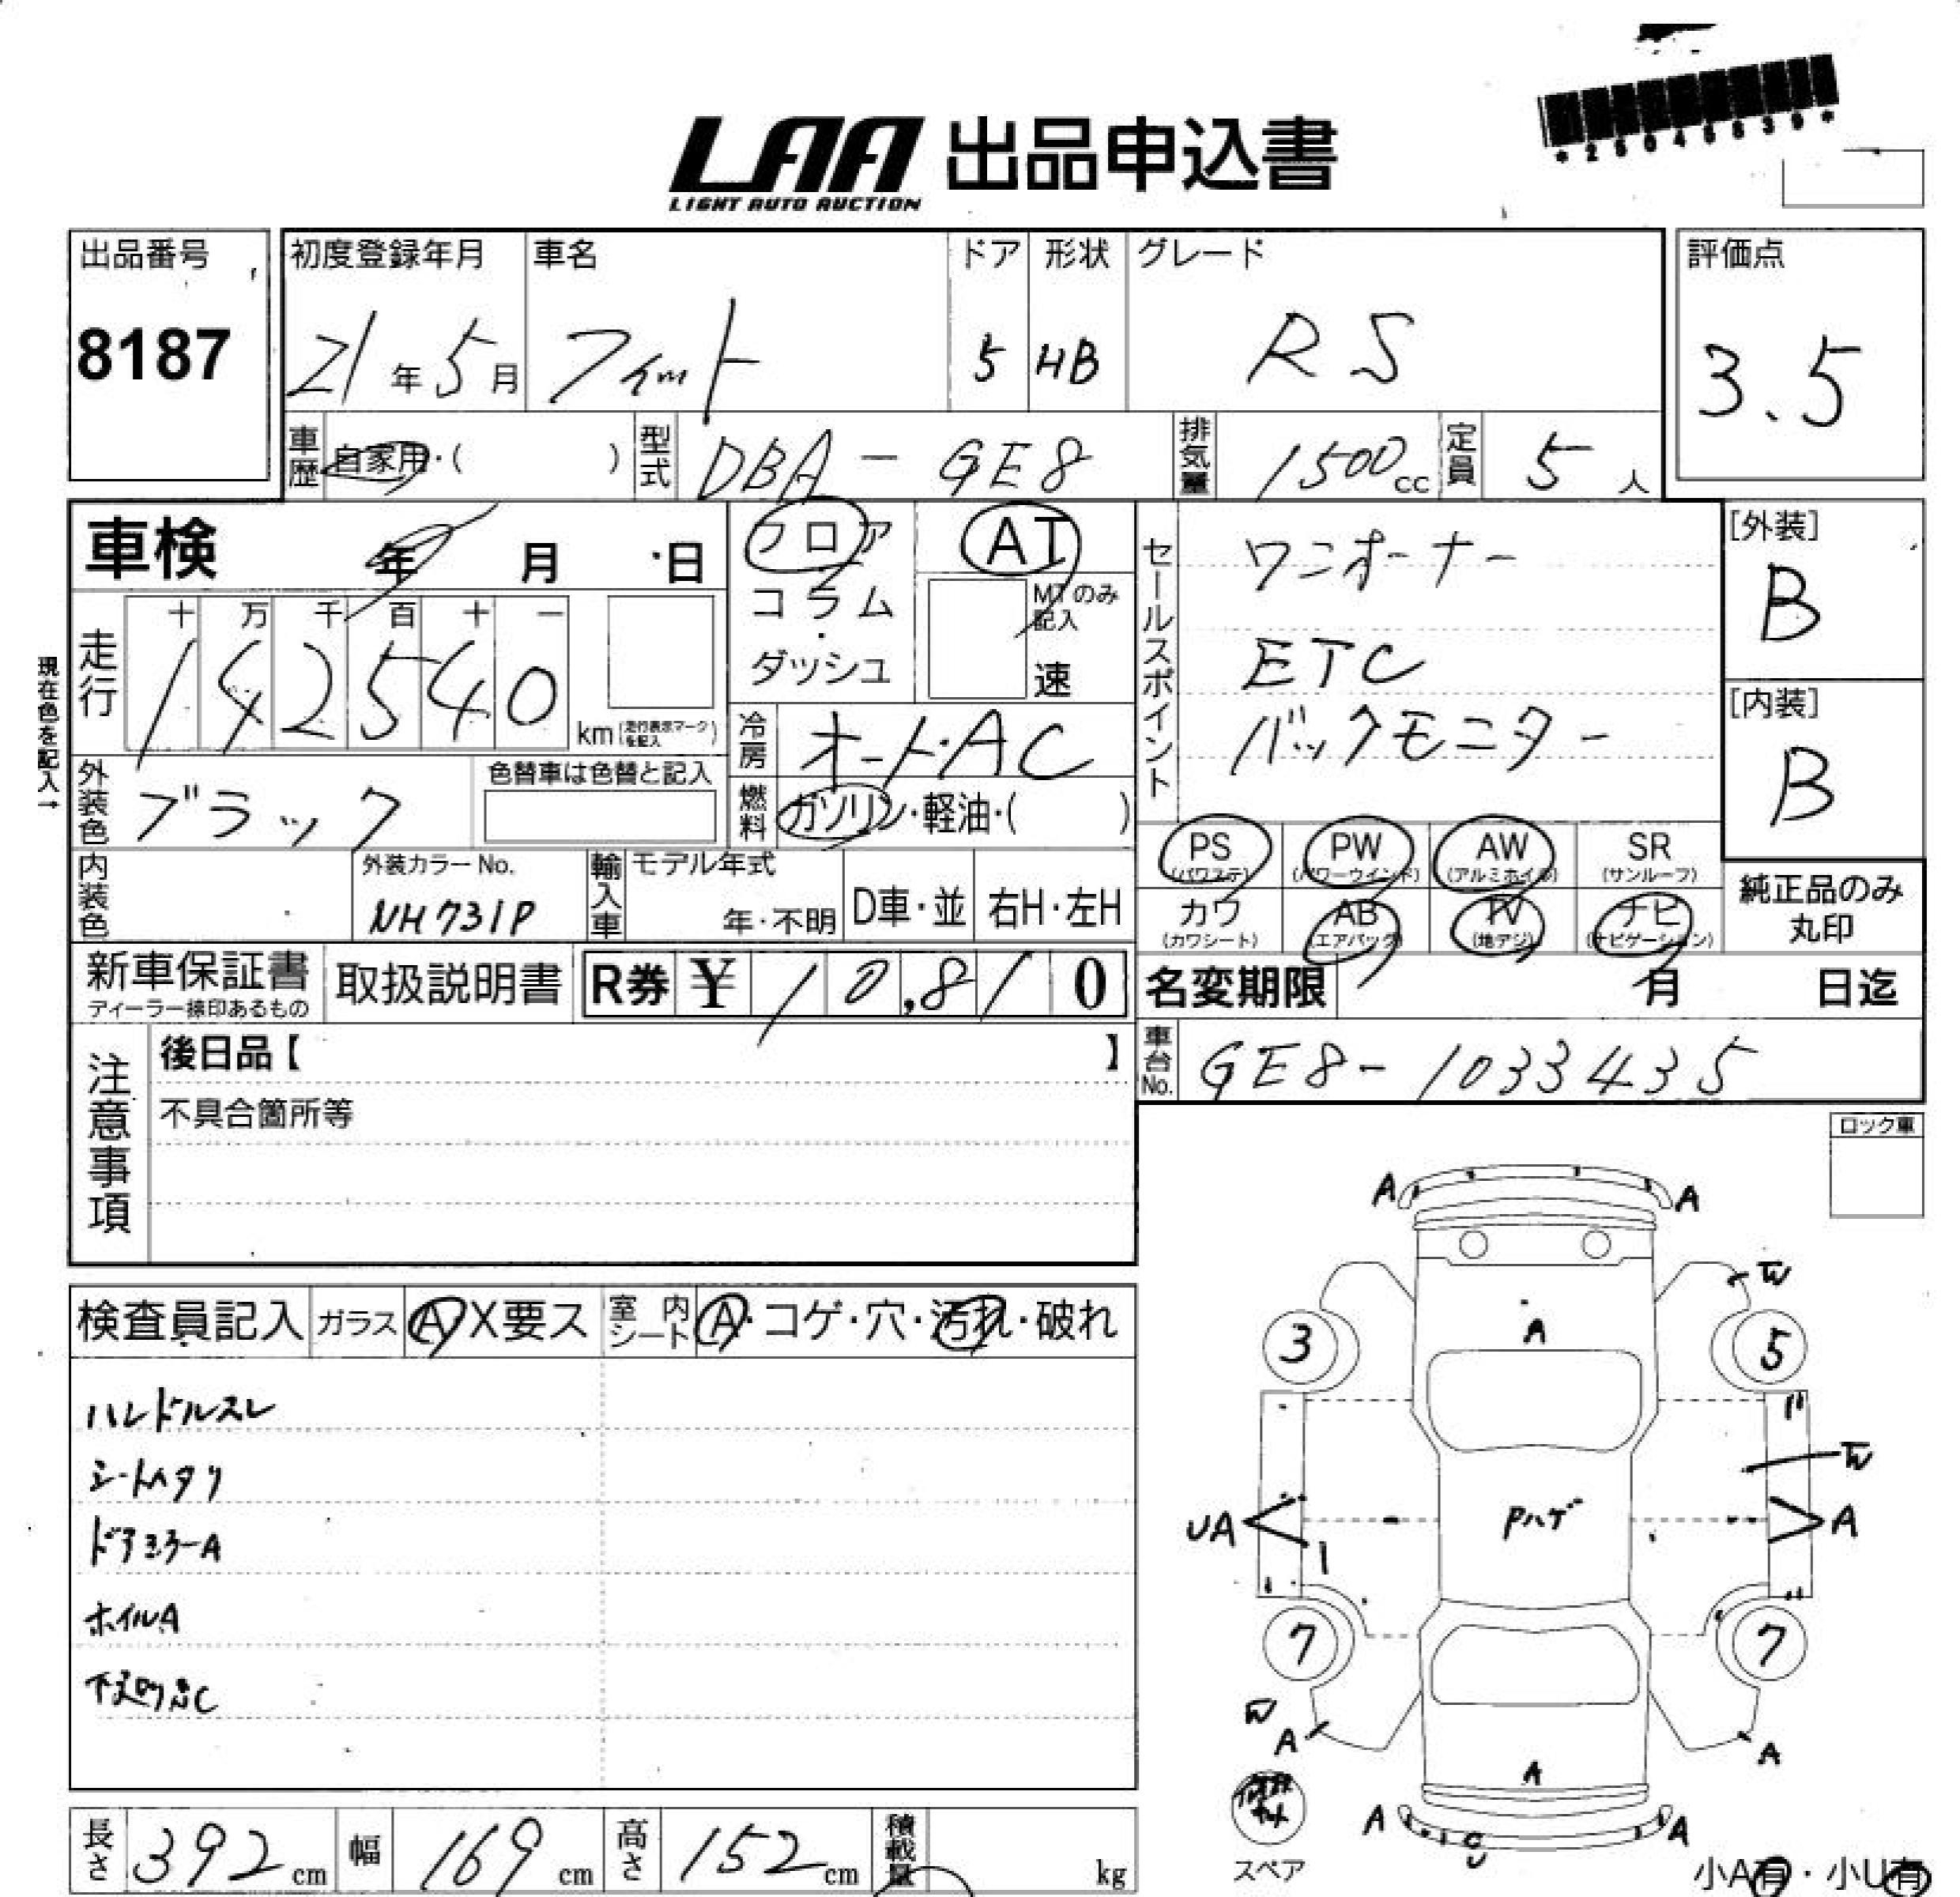 *25045639*
LAA 出品申込書
LIGHT AUTO AUCTION
出品番号
8187
初度登録年月 車名 ドア 形状 グレード
21年 5月 フィット 5 HB RS
評価点
3.5
車歴 自家用・( ) 型式 DBA - GE8 排気量 1500cc 定員 5人
車検 年 月 日
フロア・コラム・ダッシュ
AT
MTのみ記入
速
セールスポイント
ワンオーナー
ETC
バックモニター
[外装]
B
[内装]
B
現在色を記入→
走行 十 万 千 百 十 一
142540 km (走行表示マークを記入)
冷房 オートAC
燃料 ガソリン・軽油・( )
外装色 ブラック
色替車は色替と記入
PS (パワステ) PW (パワーウインド) AW (アルミホイル) SR (サンルーフ)
カワ (カワシート) AB (エアバック) TV (地デジ) ナビ (ナビゲーション)
純正品のみ丸印
内装色 外装カラーNo. NH731P
輸入車 モデル年式 年・不明 D車・並 右H・左H
新車保証書 取扱説明書 R券 ¥ 10,810
ディーラー捺印あるもの
名変期限 月 日迄
車台No. GE8-1033435
注意事項
後日品【 】
不具合箇所等
ロック車
検査員記入 ガラス A X要ス 室内シート A・コゲ・穴・汚れ・破れ
ハンドルスレ
シートヘタリ
ドアミラーA
ホイルA
A A
W
A
3 5
W
UA Pハゲ A
7 7
W
A A
A
A A
スペア
小A有・小U有
長さ 392cm 幅 169cm 高さ 152cm 積載量 kg